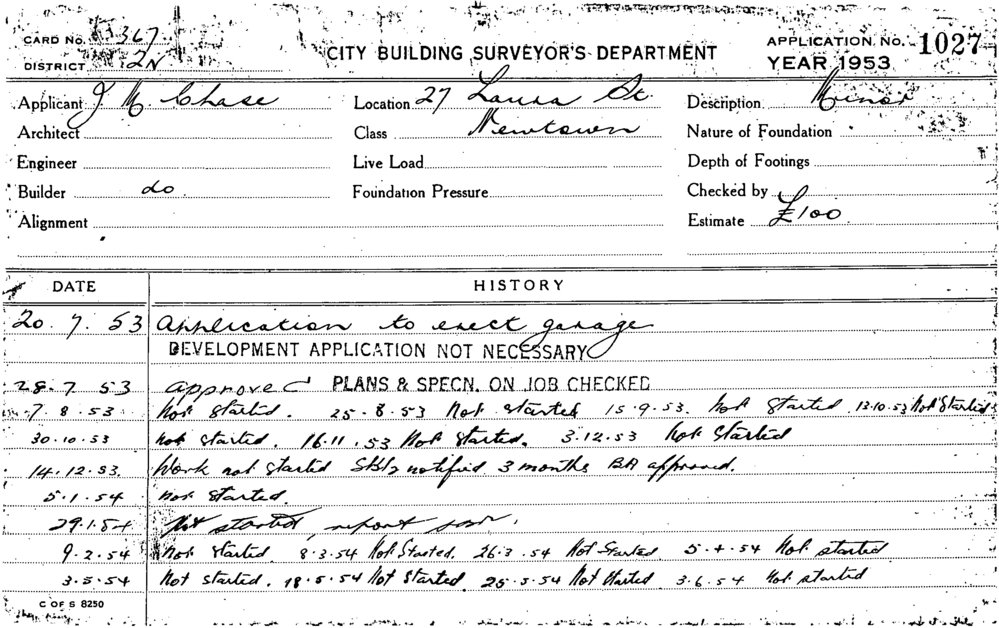 CARD No. 367
DISTRICT 2N
CITY BUILDING SURVEYOR'S DEPARTMENT
APPLICATION. No. 1027
YEAR 1953
Applicant J M Chase Location 27 Laura St. Description Minor
Architect Class Newtown Nature of Foundation
Engineer Live Load Depth of Footings
Builder do Foundation Pressure Checked by
Alignment Estimate £100
DATE HISTORY
20. 7. 53 Application to erect garage
DEVELOPMENT APPLICATION NOT NECESSARY
28.7 53 approved PLANS & SPECN. ON JOB CHECKED
7.8.53 Not started. 25.8.53 Not started 15.9.53. Not started 13.10.53 Not Started
30.10.53 not started. 16.11.53 Not started. 3.12.53 Not started
14.12.53. Work not started notified 3 months BA approved.
5.1.54 Not started.
29.1.54 Not started, report
9.2.54 Not started 8.3.54 Not Started. 26.3.54 Not Started 5.4.54 Not started
3.5.54 Not started. 18.5.54 Not started 25.5.54 Not started 3.6.54 Not started
C OF S 8250